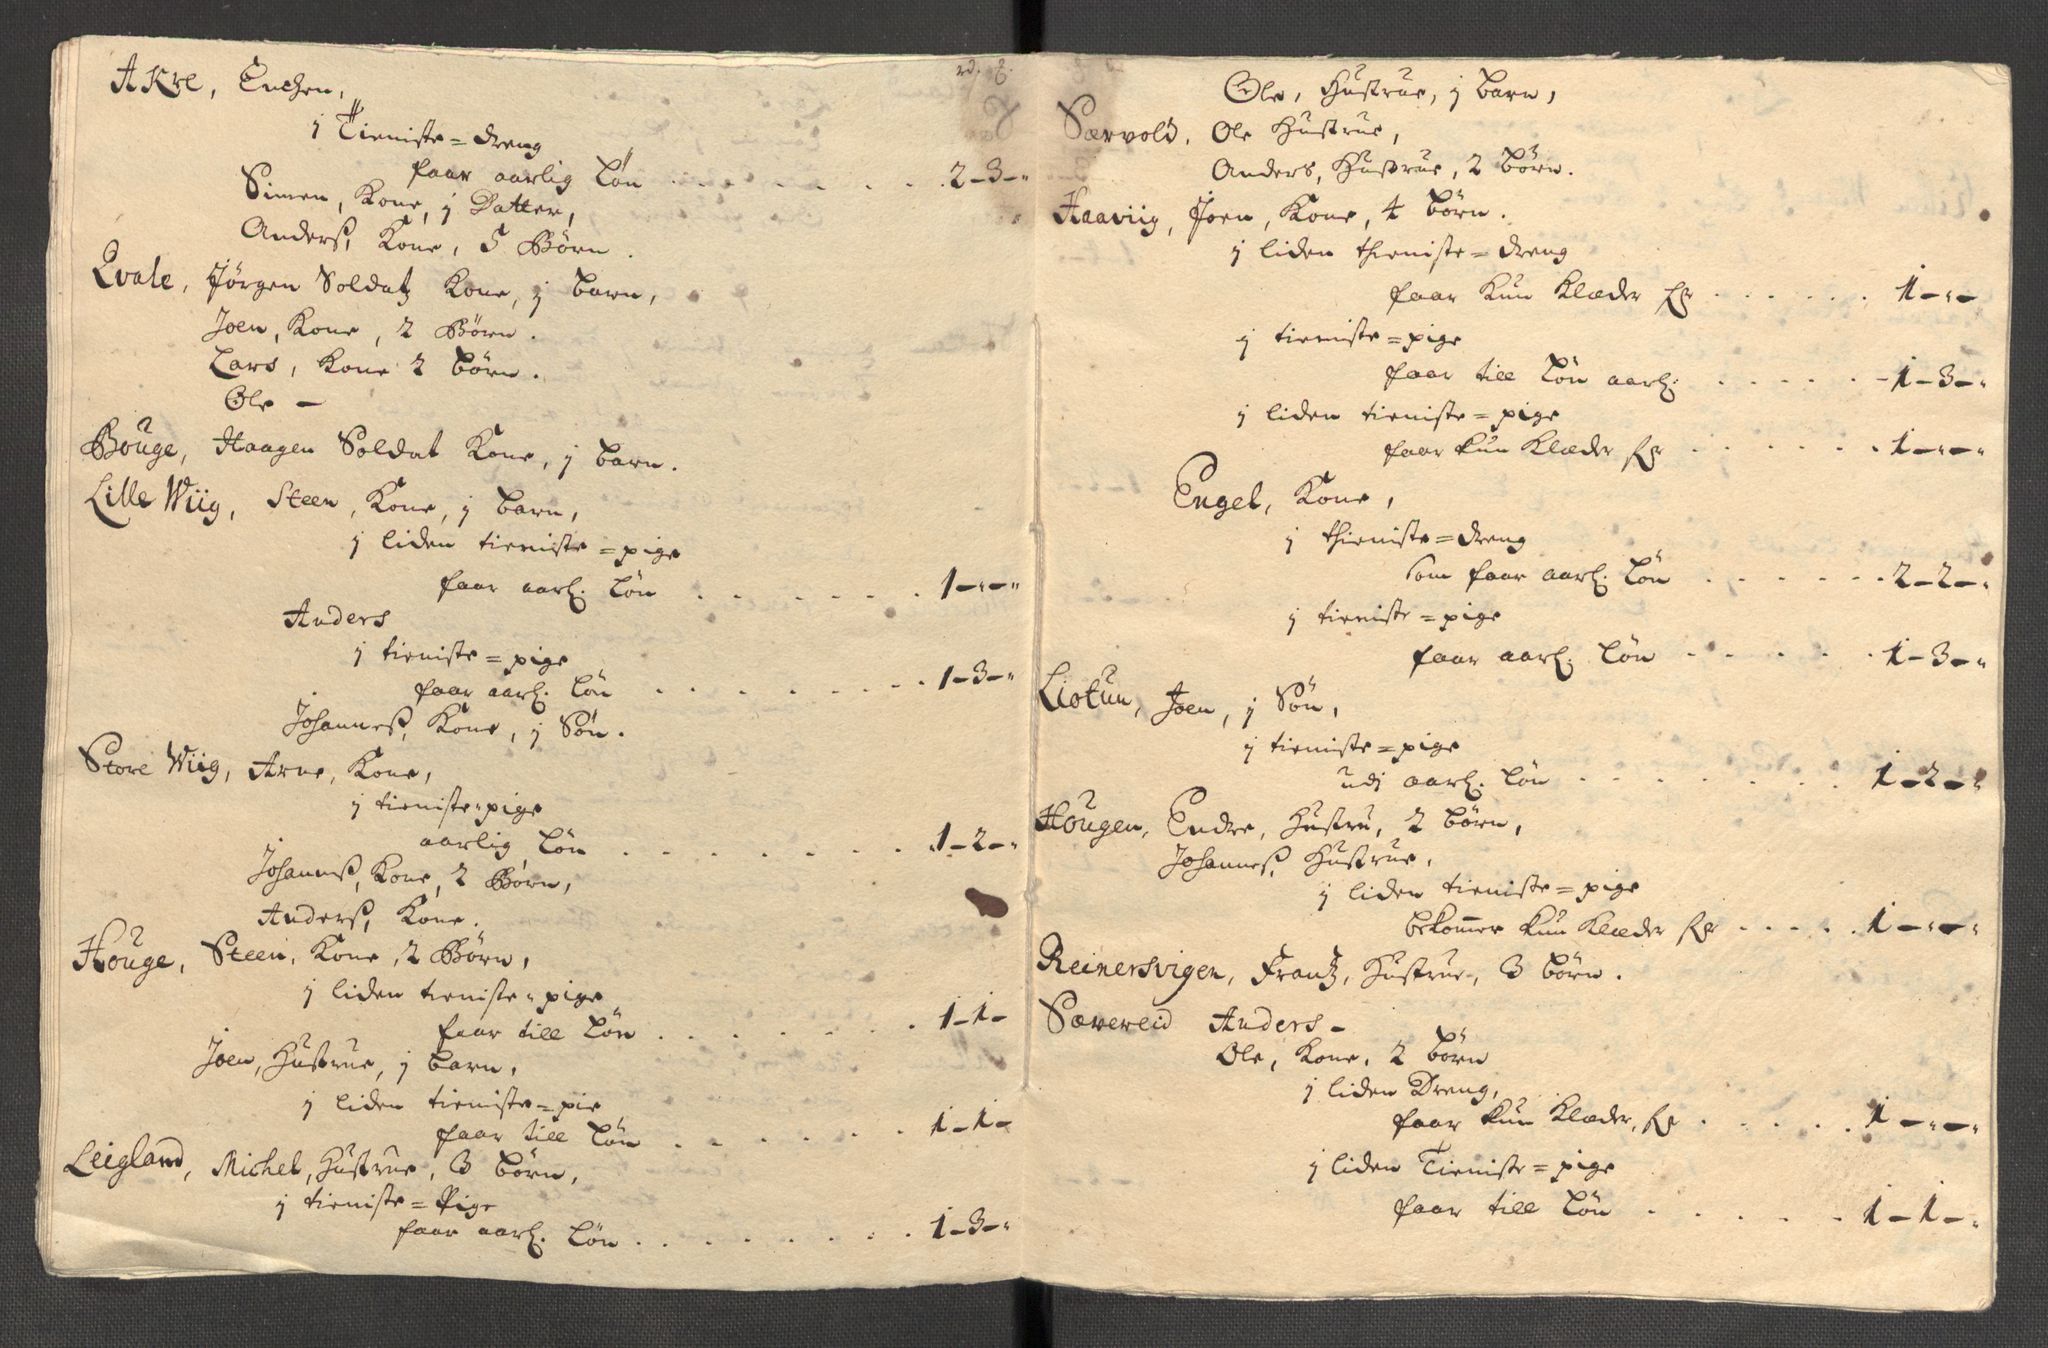 rd. ß.
Akre, Enchen,
j Tieniste=dreng
faar aarlig Løn . . . . . . . . 2-3-"
Simen, Kone, j Datter,
Anderß, Kone, 5 Børn.
Qvale, Jørgen Soldatz Kone, j barn,
Joen, Kone, 2 Børn.
Lars, Kone 2 børn.
Ole —
Bouge, Haagen Soldat Kone, j barn.
Lille Wiig, Steen, Kone, j barn,
j liden tieniste=pige
faar aarl. Løn . . . . . . . 1-"-"
Anders
j tieniste=pige
faar aarl. Løn . . . . . . . . 1-3-"
Johanneß, Kone, j Søn.
Store Wiig, Arne, Kone,
j tieniste=pige
aarlig Løn . . . . . . . . 1-2-"
Johannß, Kone, 2 Børn,
Anderß, Kone.
Houge, Steen, Kone, 2 Børn,
j liden tieniste=pige
faar till Løn . . . . . . . 1-1-
Joen, Hustrue, j barn,
j liden tieniste=pie
faar till Løn . . . . . . 1-1-
Leigland, Michel, Hustrue, 3 børn,
j tieniste=Pige
faar aarl. Løn . . . . . . . . 1-3-"
Ole, Hustrue, j barn,
Særvold, Ole Hustrue,
Anders, Hustrue, 2 børn.
Haaviig, Joen, Kone, 4 børn.
j liden thieniste=dreng
faar kun Klæder for . . . . . . 1-"-
j tieniste=pige
faar till Løn aarl. . . . . . 1-3-"
j liden tieniste=pige
faar kun Klæder for . . . . . . 1-"-"
Engel, Kone,
j thieniste=dreng
som faar aarl. Løn . . . . . . 2-2-"
j tieniste=pige
faar aarl. Løn . . . . . . 1-3-"
Liotun, Joen, j Søn,
j tieniste=pige
udj aarl. Løn . . . . . . . 1-2-"
Hougen, Endre, Hustru, 2 børn,
Johanneß, Hustrue,
j liden tieniste=pige
bekommer kun Klæder for . . . . . 1-"-"
Reinersvigen, Frantz, Hustrue, 3 børn.
Særereid Anders —
Ole, Kone, 2 børn
j liden Dreng,
faar kun Klæder, for . . . . . 1-"-"
j liden Tieniste=pige
faar till Løn . . . . . . 1-1-"